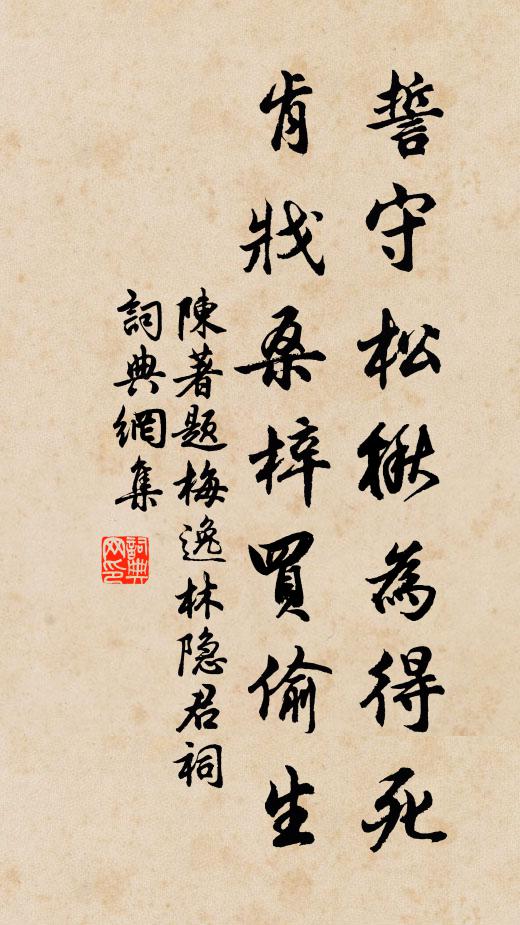 誓守松楸為得死
肯戕桑梓買偷生
陳著題梅逸林隐君祠
詞典網集
詞典
网印